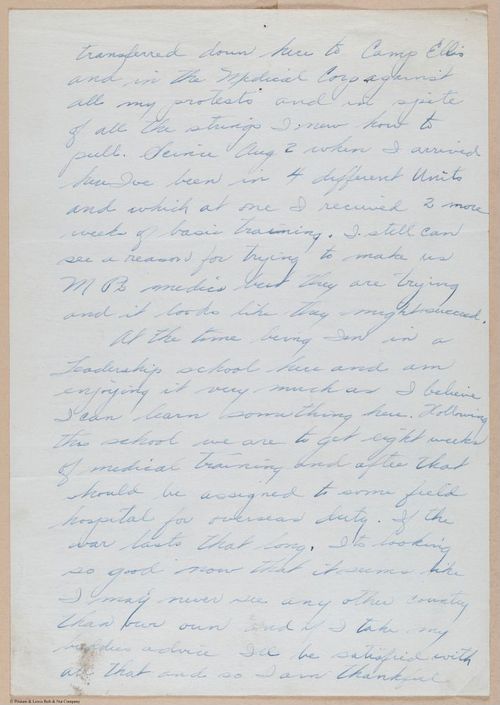 transferred down here to Camp Ellis
and in the Medical Corp against
all my protests and in spite
of all the strings I now how to
pull. Scince Aug 2 when I arrived
here I've been in 4 different Units
and which at one I received 2 more
weeks of basic training. I still can
see a reason for trying to make us
M Ps medics but they are trying
and it looks like they might succeed.
At the time being I'm in a
Leadership school here and am
enjoying it very much as I believe
I can learn something here. Following
this school we are to get eight weeks
of medical training and after that
should be assigned to some field
hospital for overseas duty. If the
war lasts that long. Its looking
so good now that it seems like
I may never see any other country
than our own and if I take my
buddies advice I'll be satisfied with
all that and so I am thankful